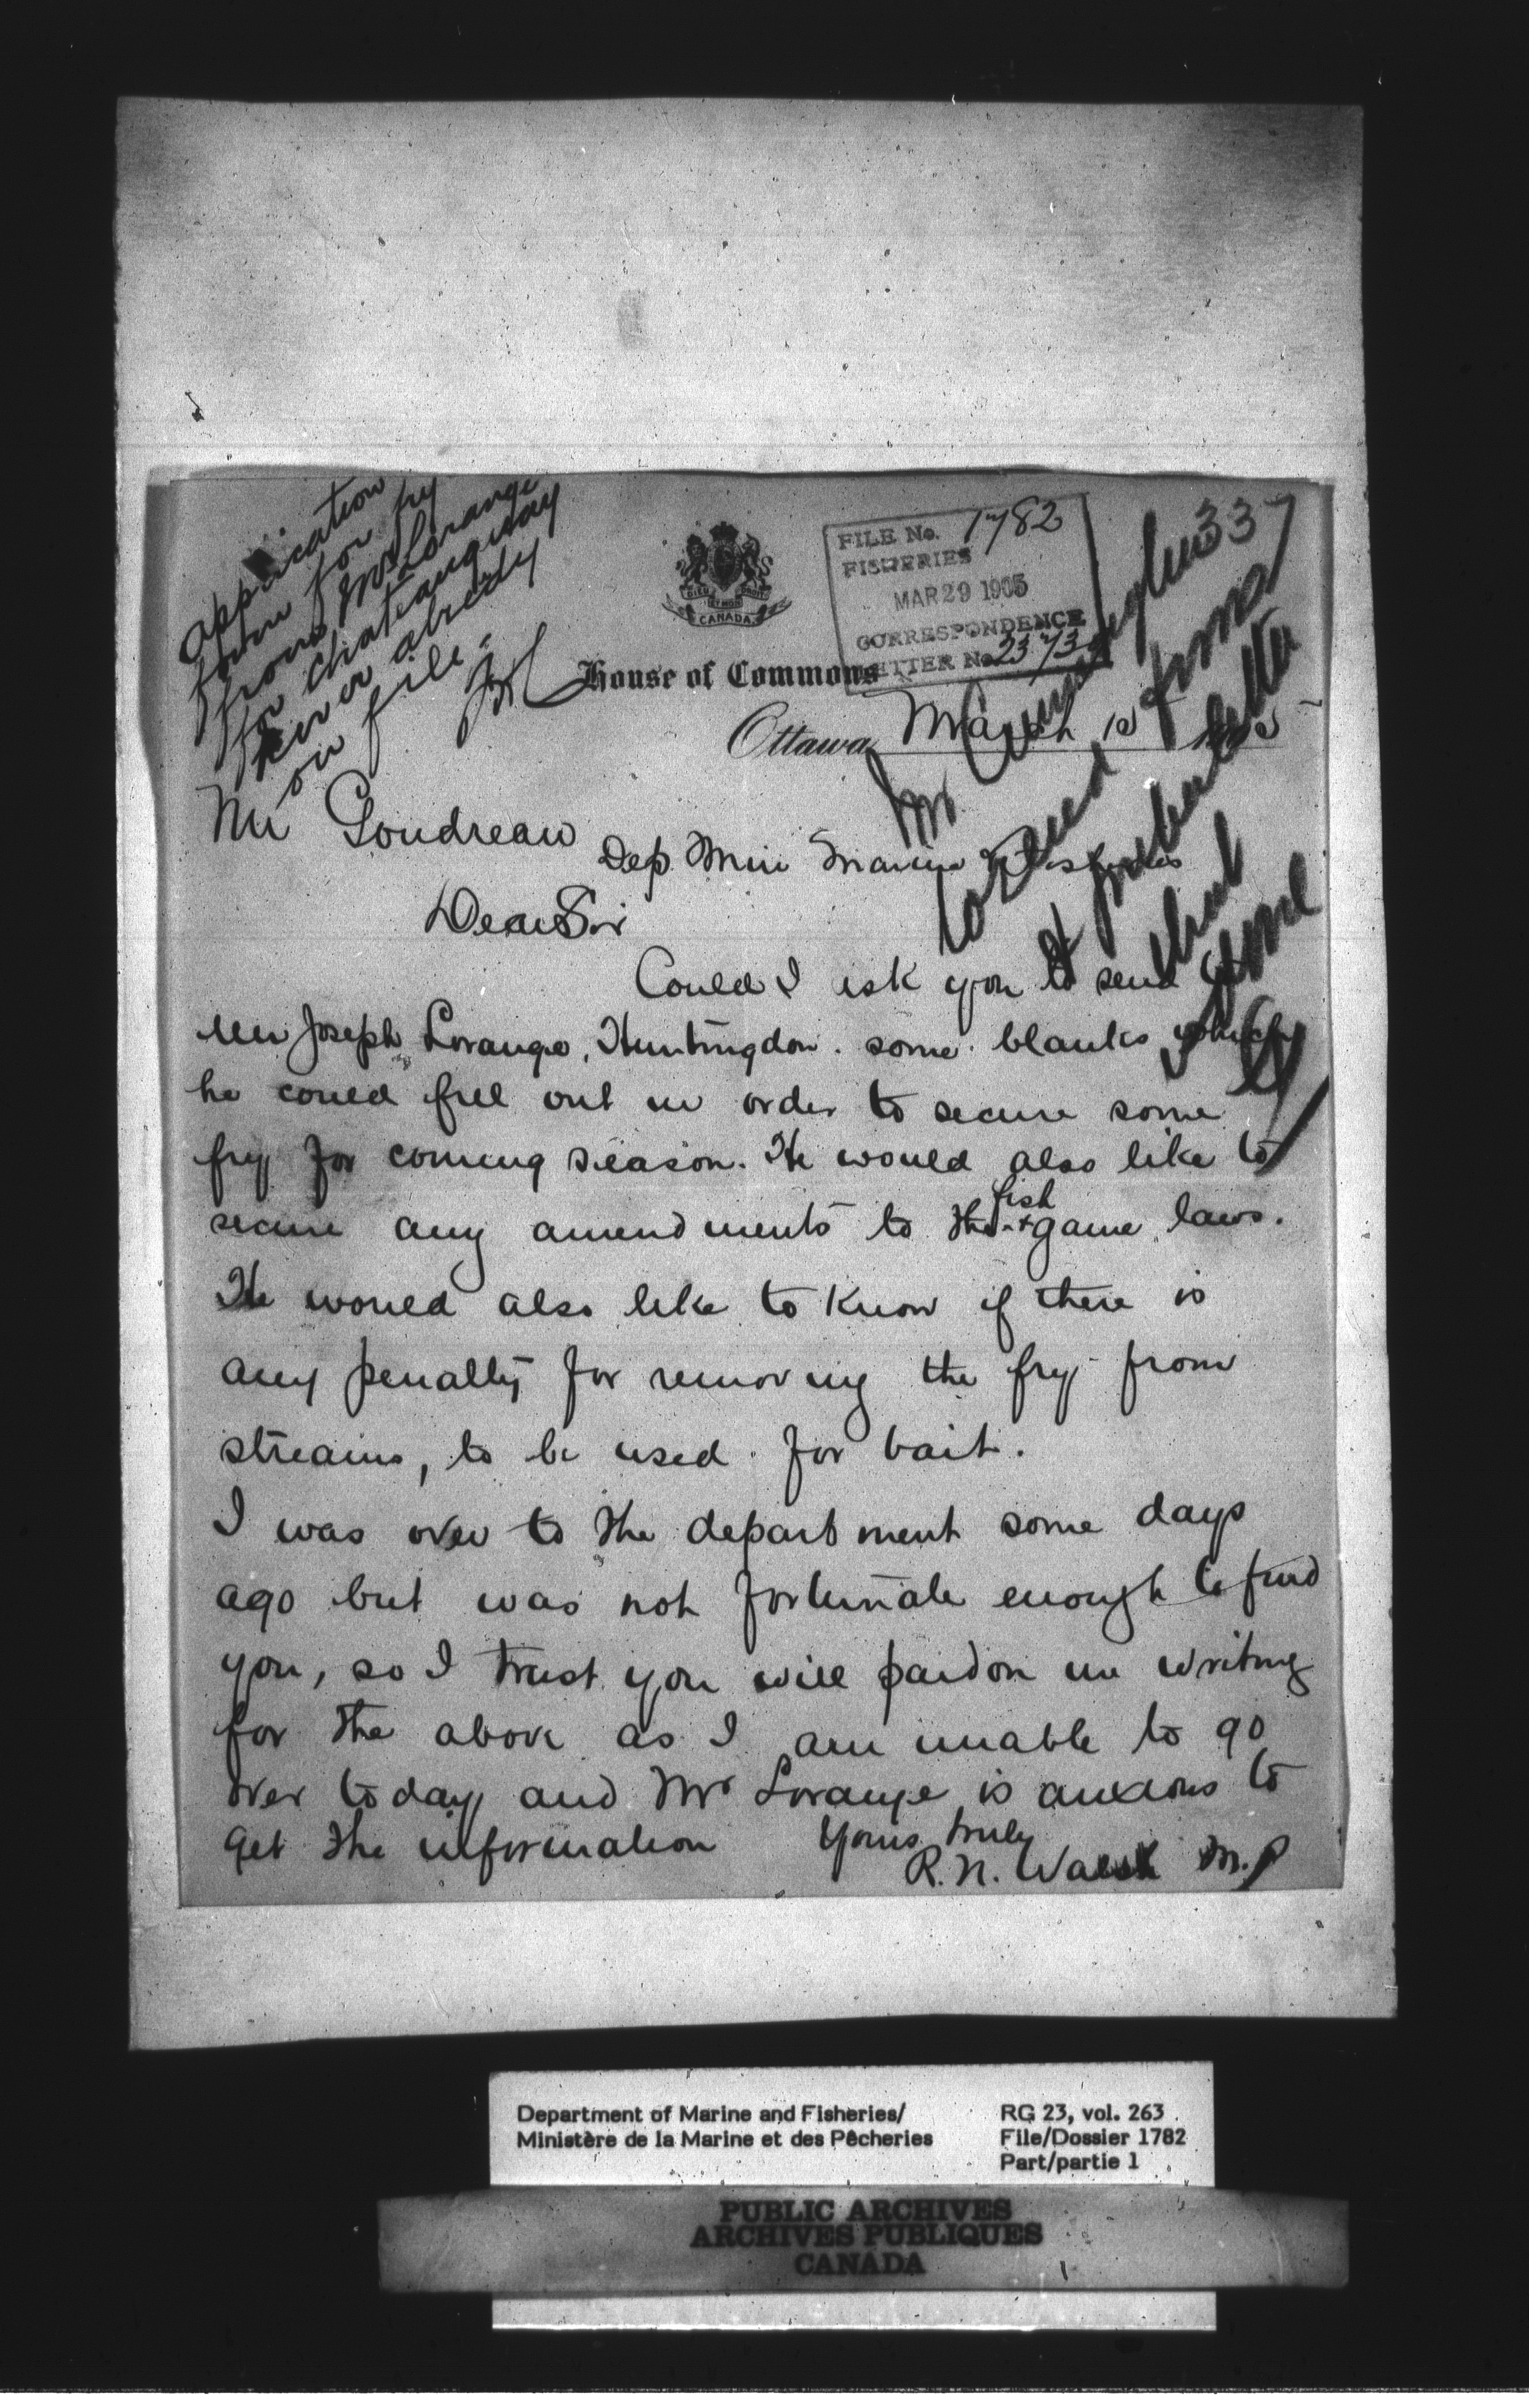 application
form for fry
from Mr Lorange
for Chateauguay
River already
on file.
337
FILE No. 1782
FISHERIES
MAR 29 1905
CORRESPONDENCE
LETTER No 2373
DIEU ET MON DROIT
CANADA
House of Commons
Ottawa March
Mr Cunningham
forms
letter
Mr Goudreau
Dep. Min Marine & Fisheries
Dear Sir
Could I ask you to send
Mr Joseph Lorange, Huntingdon. some blanks which
he could fill out in order to secure some
fry for coming season. He would also like to
secure any amendments to the fish & game laws.
He would also like to know if there is
any penalty for removing the fry from
streams, to be used for bait.
I was over to the department some days
ago but was not fortunate enough to find
you, so I trust you will pardon me writing
for the above as I am unable to go
over today and Mr Lorange is anxious to
get the information Yours truly
R. N. Walsh M.P
Department of Marine and Fisheries/
Ministère de la Marine et des Pêcheries
RG 23, vol. 263
File/Dossier 1782
Part/partie 1
PUBLIC ARCHIVES
ARCHIVES PUBLIQUES
CANADA